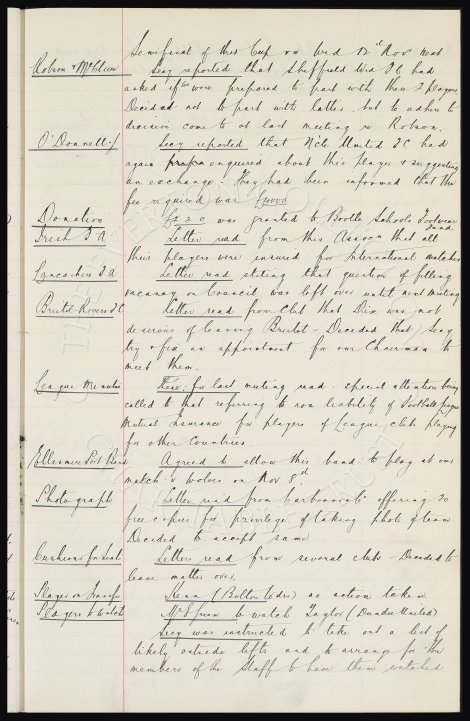 Semifinal of this Cup on Wed 12th Nov next
Robson & McClure Secy reported that Sheffield Wed F C had
asked if we were prepared to part with these 2 players
Decided not to part with latter, but to adhere to
decision come to at last meeting re Robson.
O'Donnell Secy reported that Ncle United F C had
again enquired about this player & suggesting
an exchange. They had been informed that the
fee required was £4000
Donation £2 2 0 was granted to Bootle Schools Footwear Fund.
Irish F A Letter read from this Assocn that all
their players were insured for International matches
Lancashire F A Letter read stating that question of filling
vacancy on Council was left over until next meeting
Bristol Rovers F C Letter read from Club that Dix was not
desirous of leaving Bristol - Decided that Secy
try & fix an appointment for our Chairman to
meet them.
League Minutes These for last meeting read. Special attention being
called to that referring to non liability of Football League
Mutual Insurance for players of League clubs playing
for other Countries.
Ellesmere Port Band Agreed to allow this band to play at our
match v Wolves on Nov 8th
Photographs Letter read from offering 30
free copies for privilege of taking photo of team
Decided to accept same
Cushions for Seats Letters read from several clubs - Decided to
leave matter over.
Players on Transfer (Bolton Wdrs) no action taken.
Players to watch to watch Taylor (Dundee United)
Secy was instructed to take out a list of
likely outside lefts and to arrange for the
members of the Staff to have them watched